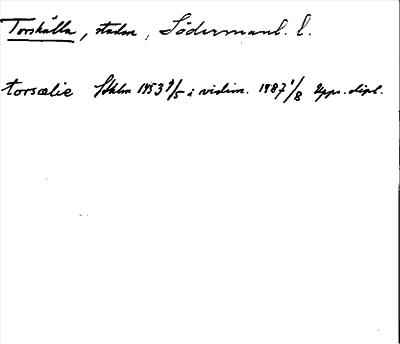 Torshälla, staden, Södermanl. l.
torsælie Sthlm 1453 9/5 i vidim. 1487 1/8 Upps. dipl.